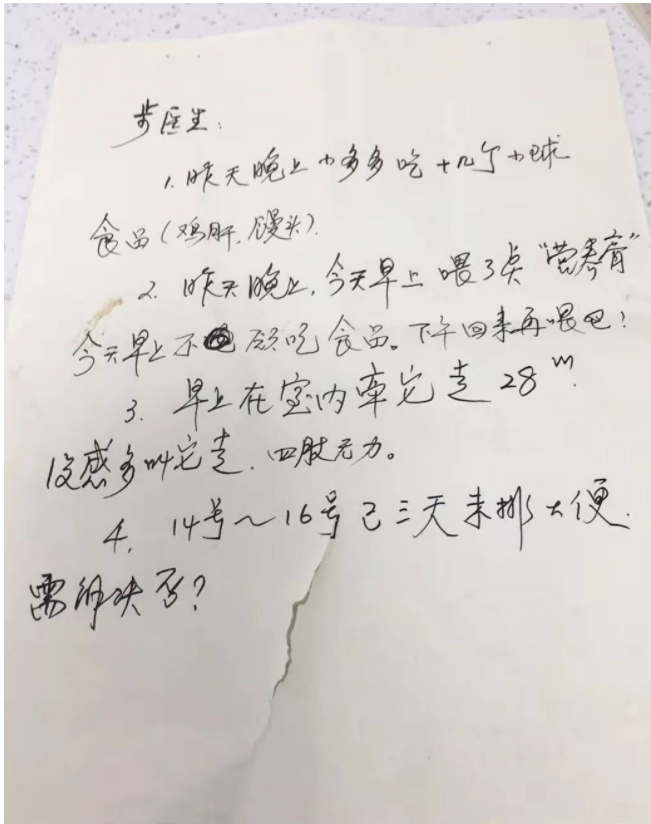 步医生：
1. 昨天晚上小多多吃十几个小球
食品（鸡肝、馒头）.
2. 昨天晚上，今天早上喂了点“营养膏”
今天早上不愿吃食品。下午回来再喂吧！
3. 早上在室内牵它走28m.
没敢多叫它走，四肢无力。
4. 14号～16号已三天未排大便.
需解决否？